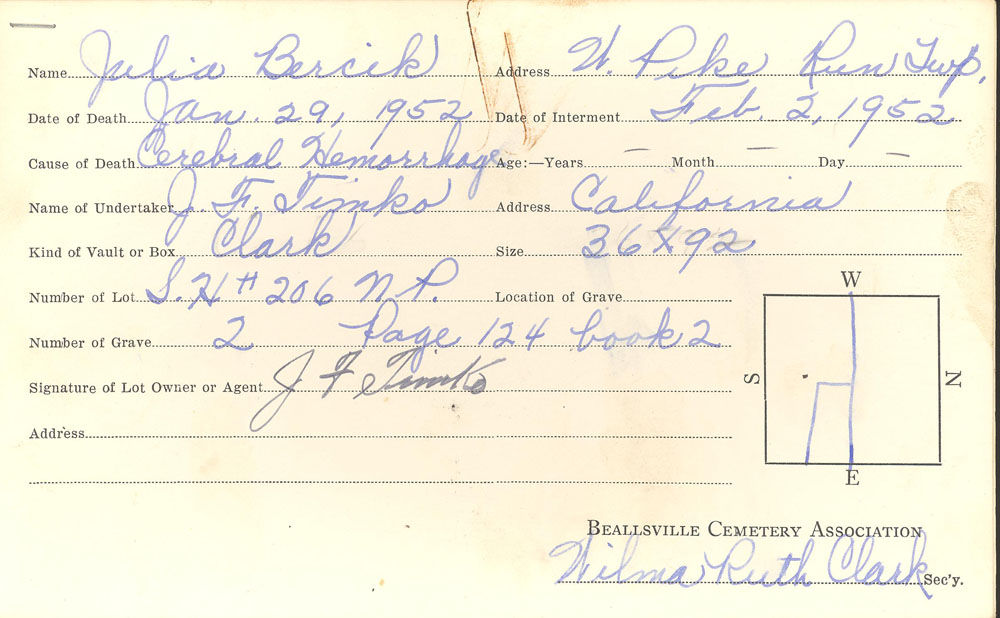 Name Julia Bercik Address W. Pike Run Twp.
Date of Death Jan. 29, 1952 Date of Interment Feb. 2, 1952
Cause of Death Cerebral Hemorrhage Age:—Years — Month — Day —
Name of Undertaker J. F. Timko Address California
Kind of Vault or Box Clark Size 36 X 92
Number of Lot S. H # 206 N. P. Location of Grave
Number of Grave 2 Page 124 book 2
Signature of Lot Owner or Agent J F Timko
Address
W
S
N
E
BEALLSVILLE CEMETERY ASSOCIATION
Wilma Ruth Clark Sec'y.